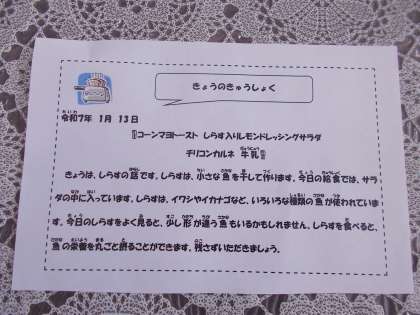 きょうのきゅうしょく
令和7年 1月 13日
『コーンマヨトースト しらす入りレモンドレッシングサラダ
チリコンカルネ 牛乳』
きょうは、しらすの話です。しらすは、小さな魚を干して作ります。今日の給食では、サラ
ダの中に入っています。しらすは、イワシやイカナゴなど、いろいろな種類の魚が使われていま
す。今日のしらすをよく見ると、少し形が違う魚もいるかもしれません。しらすを食べると、
魚の栄養を丸ごと摂ることができます。残さずいただきましょう。